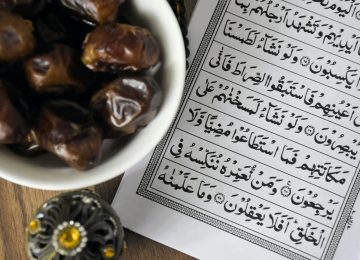 اَيْدِيْهِمْ وَتَشْهَدُ اَرْجُلُهُمْ بِمَا
يَكْسِبُوْنَ ۝ وَلَوْ نَشَآءُ لَطَمَسْنَا
اَعْيُنِهِمْ فَاسْتَبَقُوا الصِّرَاطَ فَاَنّٰى
يُبْصِرُوْنَ ۝ وَلَوْ نَشَآءُ لَمَسَخْنٰهُمْ عَلٰى
مَكَانَتِهِمْ فَمَا اسْتَطَاعُوْا مُضِيًّا وَّلَا
يَرْجِعُوْنَ ۝ وَمَنْ نُّعَمِّرْهُ نُنَكِّسْهُ فِى
الْخَلْقِ اَفَلَا يَعْقِلُوْنَ ۝ وَمَا عَلَّمْنٰهُ